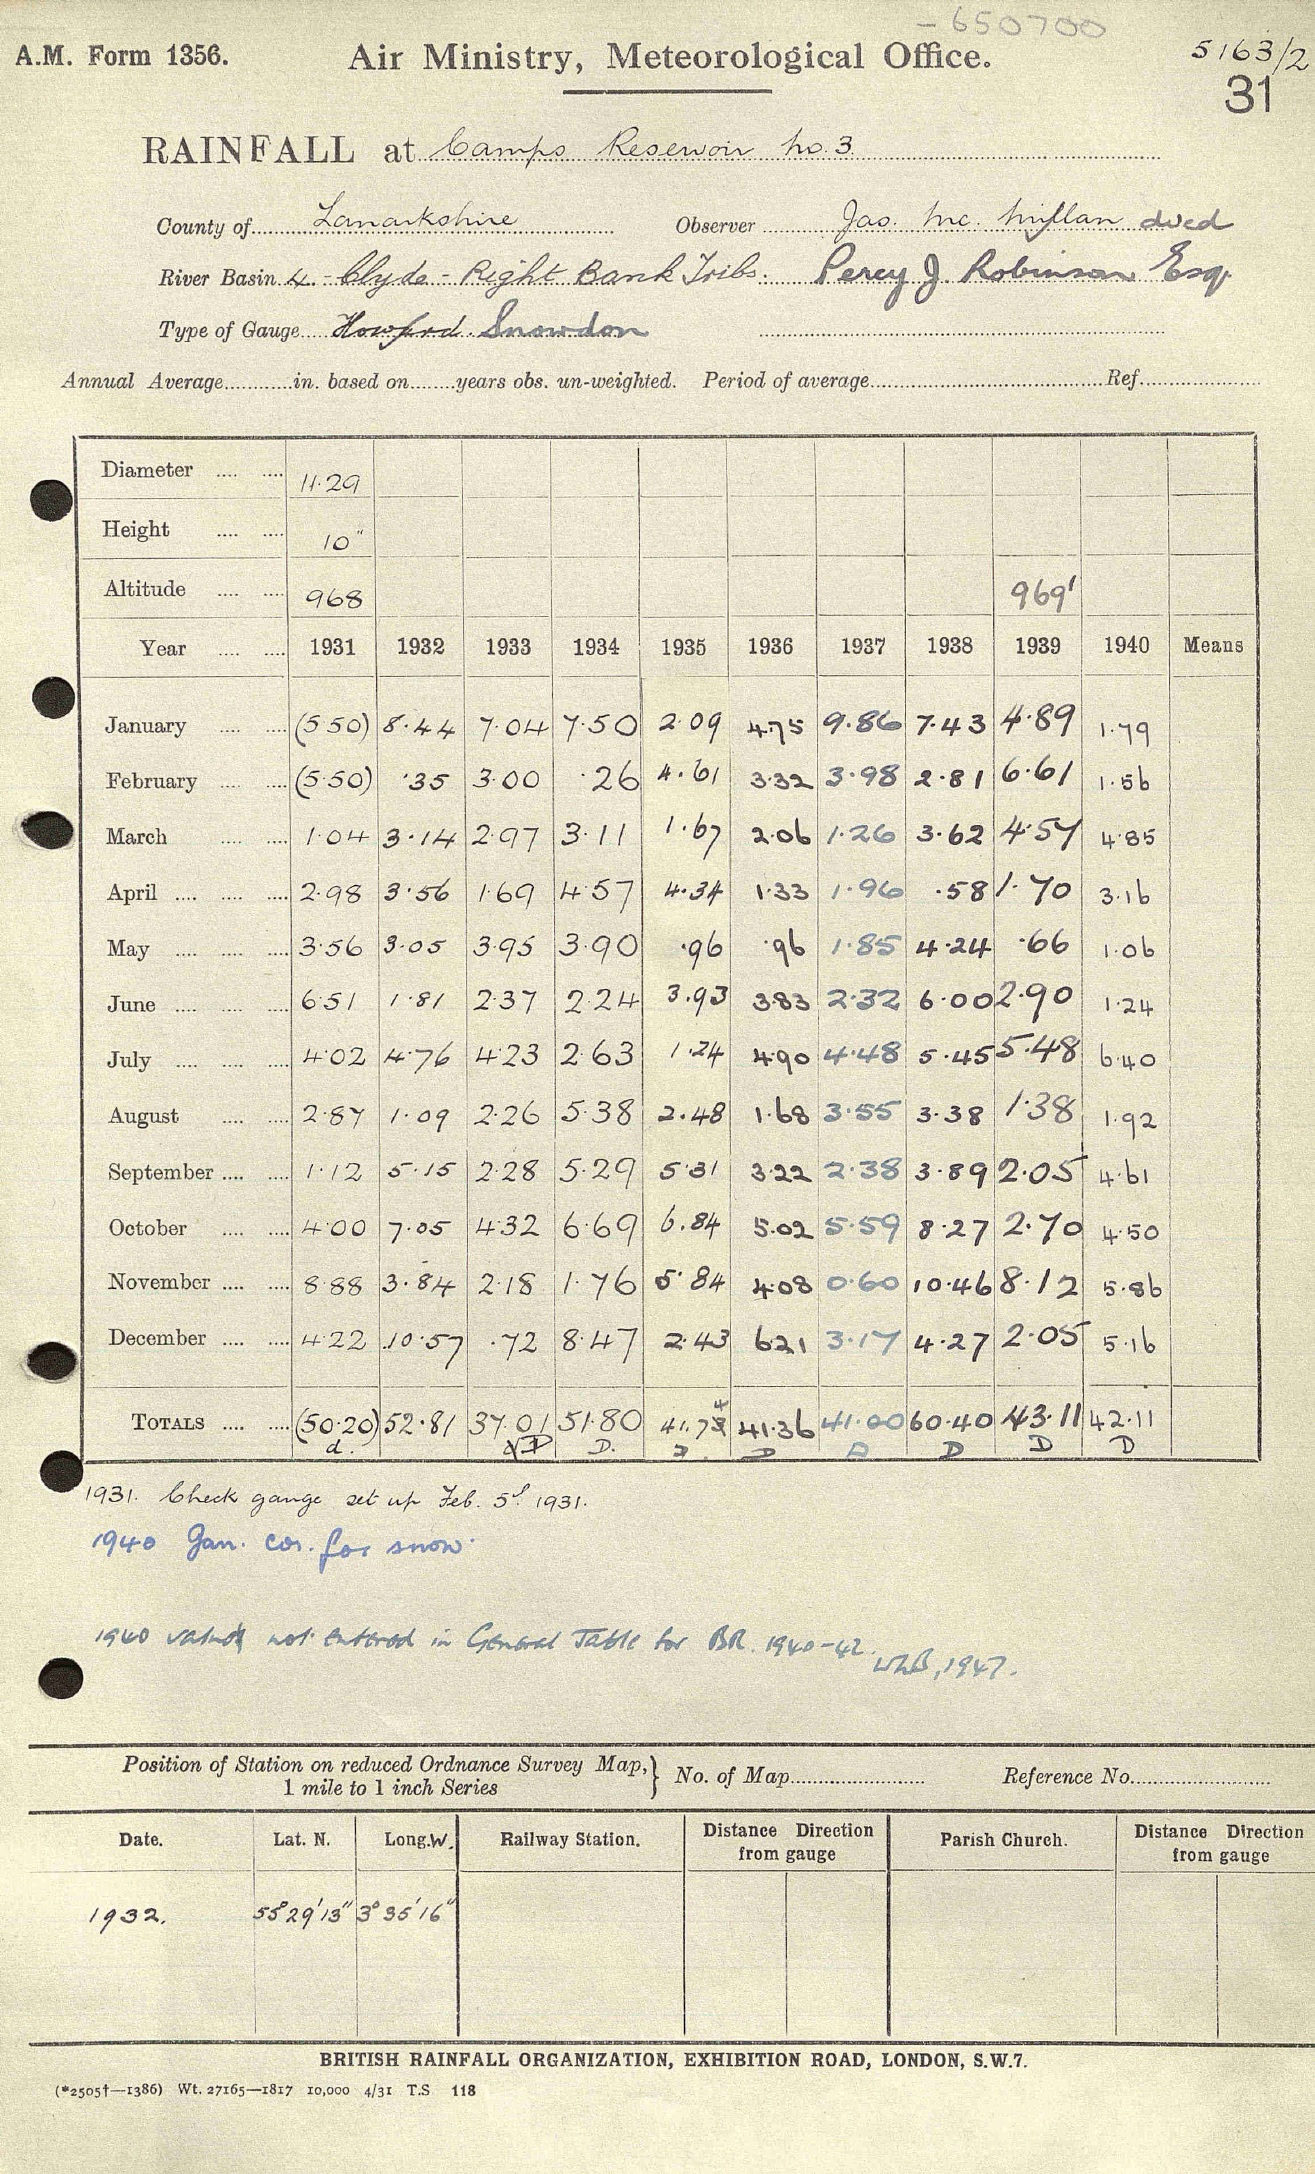 - 650700
A.M. Form 1356. Air Ministry, Meteorological Office. 5163/2
31
RAINFALL at Camps Reservoir No. 3
County of Lanarkshire Observer Jas. Mc. Millan dec'd
River Basin 4 - Clyde - Right Bank Tribs. Percy J. Robinson Esq.
Type of Gauge Howard Snowdon
Annual Average in. based on years obs. un-weighted. Period of average Ref.
Diameter 11.29
Height 10"
Altitude 968 969'
Year 1931 1932 1933 1934 1935 1936 1937 1938 1939 1940 Means
January (5.50) 8.44 7.04 7.50 2.09 4.75 9.86 7.43 4.89 1.79
February (5.50) .35 3.00 .26 4.61 3.32 3.98 2.81 6.61 1.56
March 1.04 3.14 2.97 3.11 1.67 2.06 1.26 3.62 4.57 4.85
April 2.98 3.56 1.69 4.57 4.34 1.33 1.96 .58 1.70 3.16
May 3.56 3.05 3.95 3.90 .96 .96 1.85 4.24 .66 1.06
June 6.51 1.81 2.37 2.24 3.93 3.83 2.32 6.00 2.90 1.24
July 4.02 4.76 4.23 2.63 1.24 4.90 4.48 5.45 5.48 6.40
August 2.87 1.09 2.26 5.38 2.48 1.68 3.55 3.38 1.38 1.92
September 1.12 5.15 2.28 5.29 5.31 3.22 2.38 3.89 2.05 4.61
October 4.00 7.05 4.32 6.69 6.84 5.02 5.59 8.27 2.70 4.50
November 8.88 3.84 2.18 1.76 5.84 4.08 0.60 10.46 8.12 5.86
December 4.22 10.57 .72 8.47 2.43 6.21 3.17 4.27 2.05 5.16
TOTALS (50.20) 52.81 37.01 51.80 41.74 41.36 41.00 60.40 43.11 42.11
d. D D. D. D D D D D
1931. Check gauge set up Feb. 5th 1931.
1940 Jan. cor. for snow.
1940 values not entered in General Table for BR. 1940-42.
WLB, 1947.
Position of Station on reduced Ordnance Survey Map, 1 mile to 1 inch Series } No. of Map Reference No.
Date. Lat. N. Long. W. Railway Station. Distance Direction from gauge Parish Church. Distance Direction from gauge
1932. 55°29'13" 3°35'16"
BRITISH RAINFALL ORGANIZATION, EXHIBITION ROAD, LONDON, S.W.7.
(*2505†—1386) Wt. 27165—1817 10,000 4/31 T.S 118